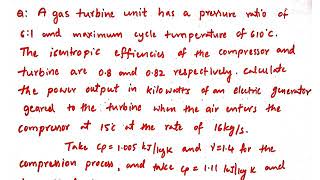 Q: A gas turbine unit has a pressure ratio of
6:1 and maximum cycle temperature of 610°C.
The isentropic efficiencies of the compressor and
turbine are 0.8 and 0.82 respectively. Calculate
the power output in kilowatts of an electric generator
geared to the turbine when the air enters the
compressor at 15°C at the rate of 16kg/s.
Take Cp = 1.005 kJ/kgK and γ=1.4 for the
compression process, and take Cp = 1.11 kJ/kgK and